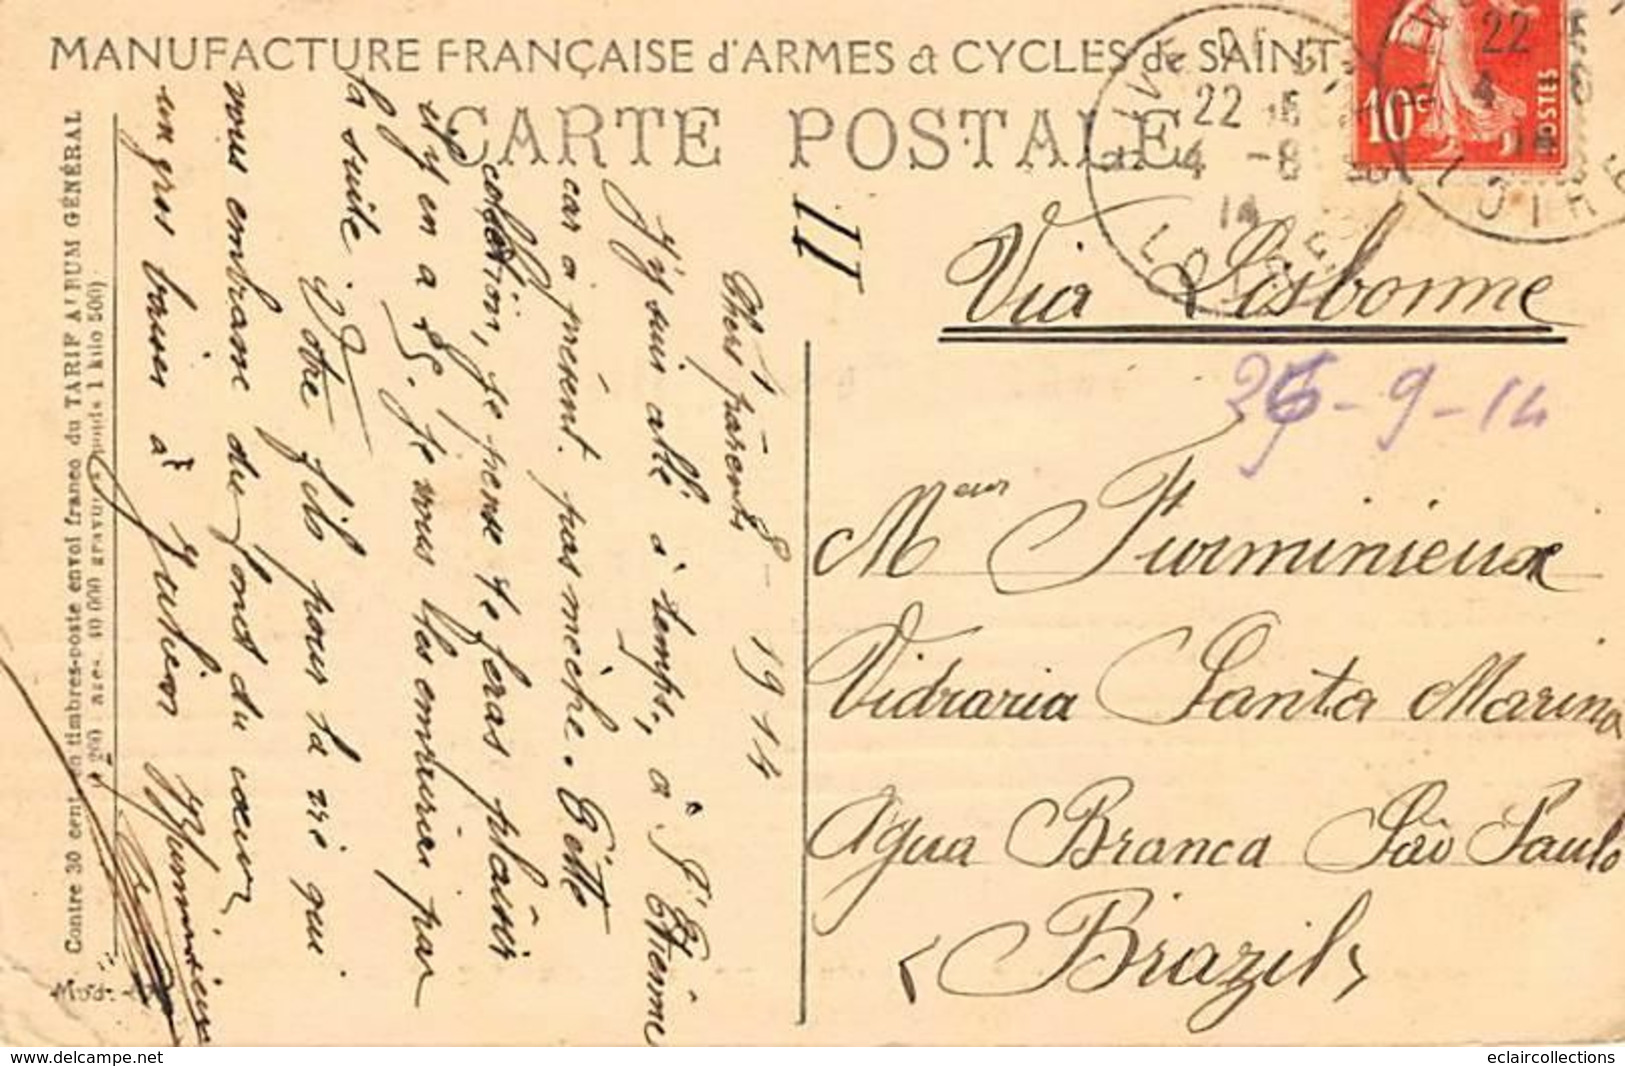 MANUFACTURE FRANÇAISE d'ARMES et CYCLES de SAINT
CARTE POSTALE
10c
POSTES
22
4
14
LOIRE
22
4 -8
14
LOIRE
II
Via Lisbonne
26-9-14
Meur Furminieux
Vidraria Santa Marina
Agua Branca São Paulo
(Brazil)
8- 1914
Chers parents
J'y suis allé à temps, à St Etienne
car a présent. pas mèche. Cette
collection, je pense te feras plaisir
il y en a 25. Je vous les enverrai par
la suite.
Votre fils pour la vie qui
vous embrasse du fond du cœur
un gros baiser à Julien Furminieux
Contre 30 cent. en timbres-poste envoi franco du TARIF ALBUM GÉNÉRAL
(1200 pages, 40 000 gravures, poids 1 kilo 500)
www.delcampe.net
eclaircollections